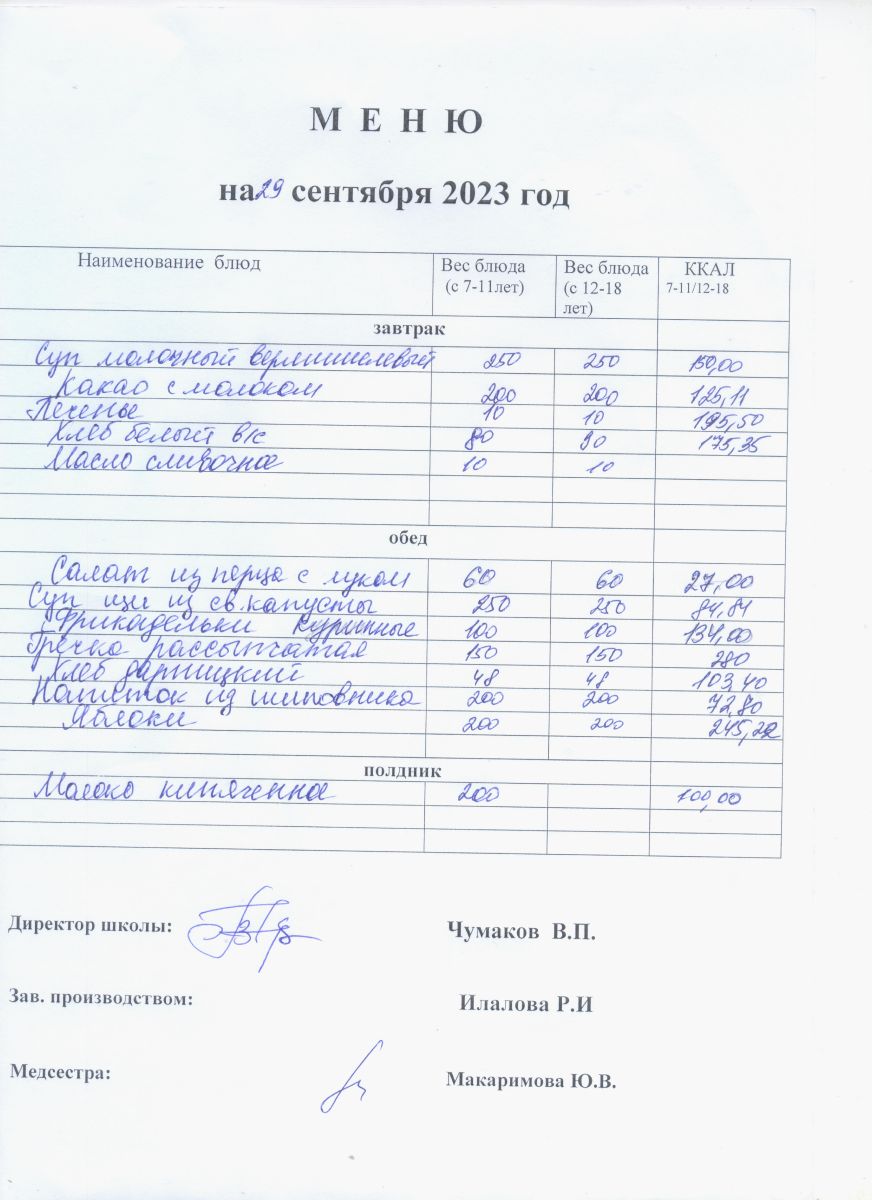 М Е Н Ю
на 29 сентября 2023 год
Наименование блюд Вес блюда (с 7-11лет) Вес блюда (с 12-18 лет) ККАЛ 7-11/12-18
завтрак
Суп молочный вермишелевый 250 250 150,00
Какао с молоком 200 200 125,11
Печенье 10 10 195,50
Хлеб белый в/с 80 90 175,35
Масло сливочное 10 10
обед
Салат из перца с луком 60 60 27,00
Суп щи из св. капусты 250 250 84,84
Фрикадельки куринные 100 100 134,00
Гречка рассыпчатая 150 150 280
Хлеб дарницкий 48 48 103,40
Напиток из шиповника 200 200 72,80
Яблоки 200 200 245,22
полдник
Молоко кипяченное 200 100,00
Директор школы: Чумаков В.П.
Зав. производством: Илалова Р.И
Медсестра: Макаримова Ю.В.